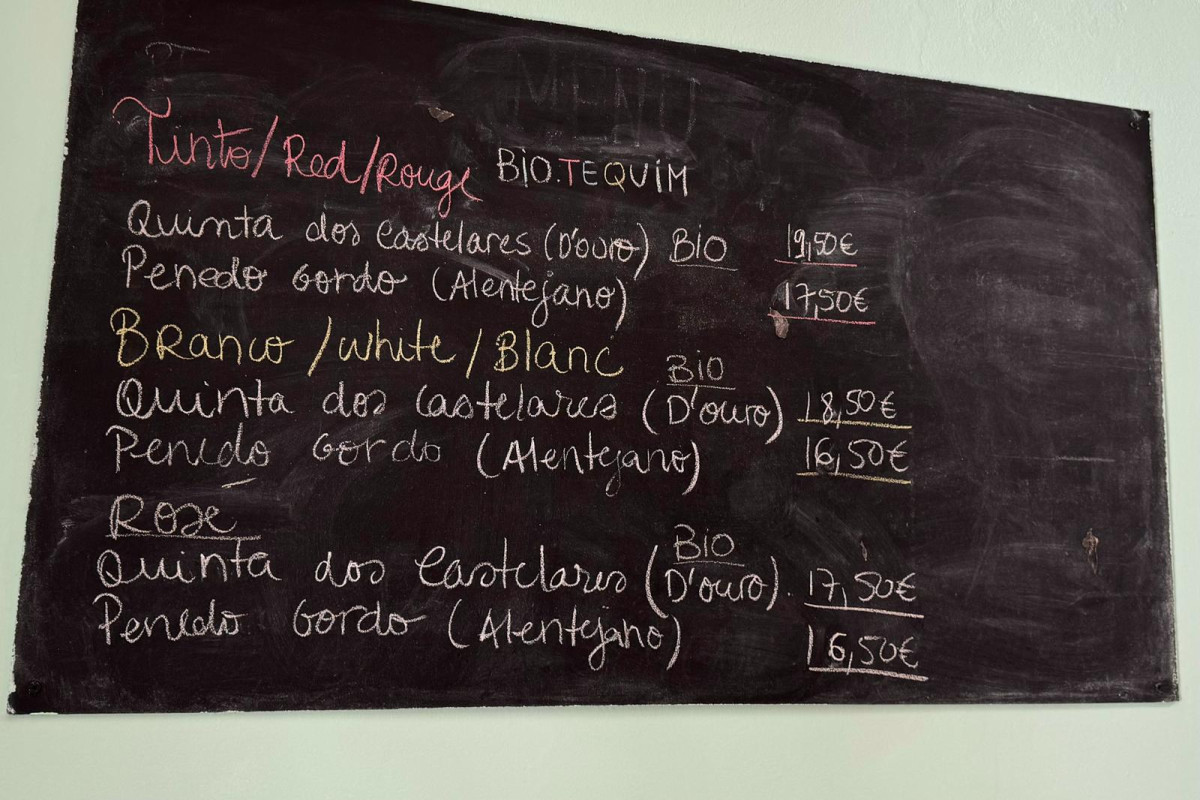 PT
MENU
Tinto/Red/Rouge BIO.TEQUIM
Quinta dos Castelares (D'ouro) BIO 19,50€
Penedo Gordo (Alentejano) 17,50€
Branco/white/Blanc
Quinta dos Castelares (D'ouro) BIO 18,50€
Penedo Gordo (Alentejano) 16,50€
Rose
Quinta dos Castelares (D'ouro). BIO 17,50€
Penedo Gordo (Alentejano) 16,50€